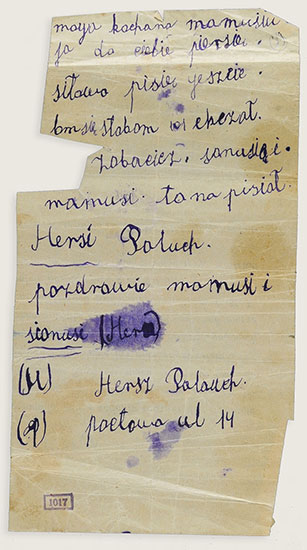 moya kochana mamusiu
ja do ciebie piersze
siława pisię jeszcie.
bmsię stabom is chczał.
zobacicz. sanusią i.
mamusi. to na pisiał.
Hersi Paluch.
pozdrowie mamusi i
sionusi (Hera)
(M) Hersz Palauch.
(p) poctowa ul 14
1017